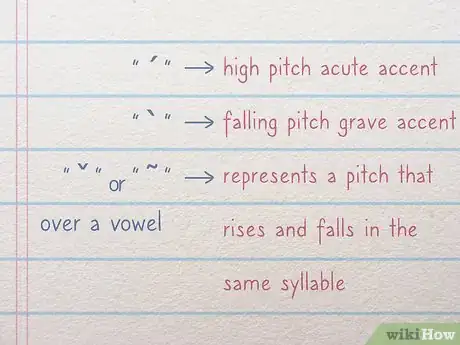 "ˊ" → high pitch acute accent
"ˋ" → falling pitch grave accent
"ˇ" or "˜" → represents a pitch that
over a vowel rises and falls in the
same syllable
wikiHow